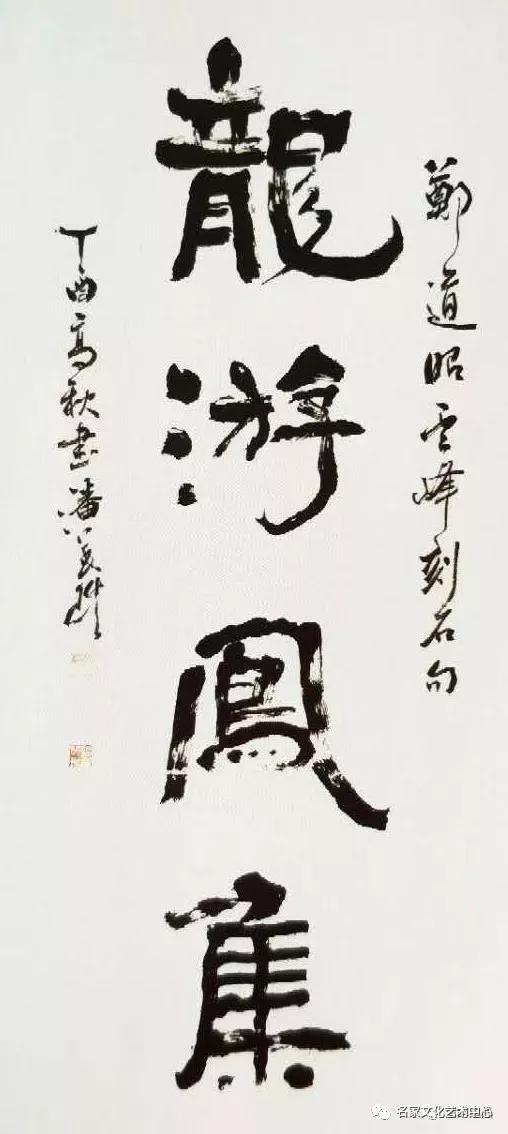 鄭道昭云峰刻石句
龍游鳳集
丁酉高秋書潘
名家文化艺术中心